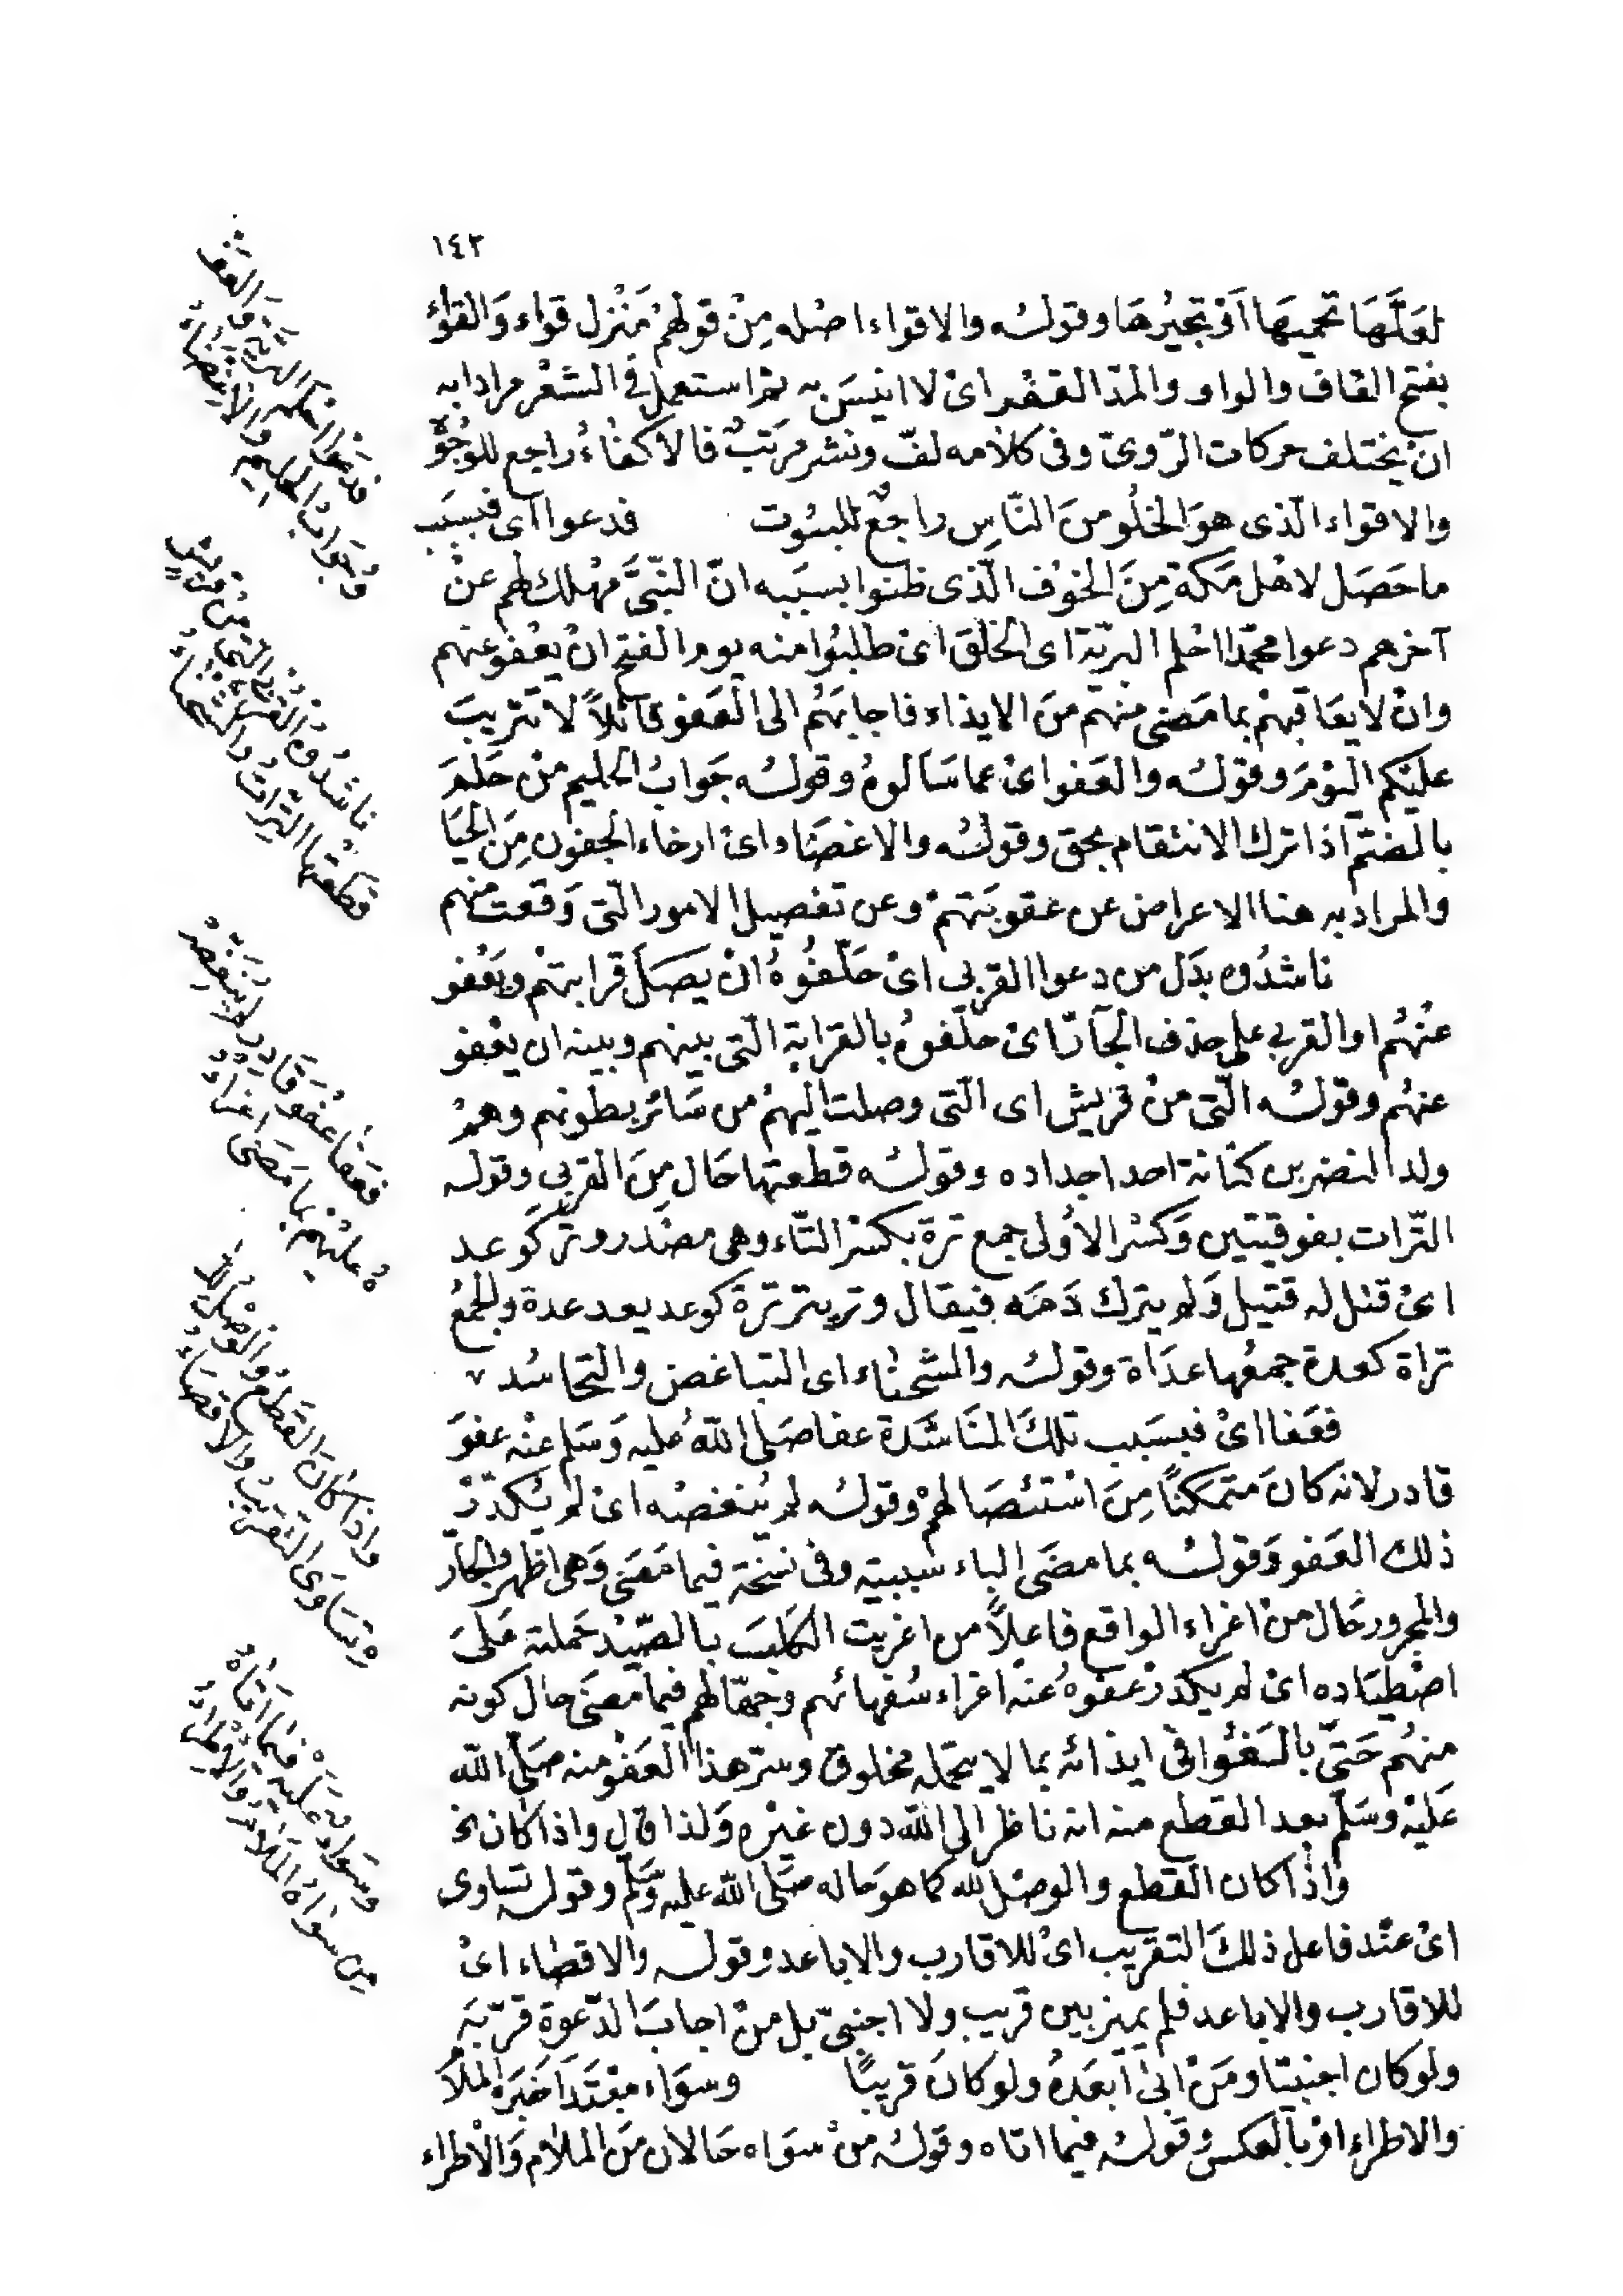 ١٤٢
لعَلَّهَا تحميهَا اَوْ تجيرُهَا وقولُه والاقواء اصْله مِنْ قولهمْ مَنْزل قواء وَالقواءُ
بفتح القاف والواو والمدّ القفر اىْ لا انيسَ به ثم استعمل فى الشعْر مرادا به
انْ يختلف حركات الرّوىّ وفى كلامه لفّ ونشر مرَتبٌ فالاكفاءُ راجع للوُجُوْه
والاقواء الّذى هوَ الخلُو منَ النّاسِ راجعٌ للبيُوت فدعوا اى فبسَبَب
ما حَصَل لاهْل مَكة مِنَ الخوْف الّذى ظنوا بسببه انّ النّبىَّ مهْلك لهم عنْ
آخرهم دعوا محمّدا احْلم البريّة اى الخلقَ اىْ طلبُوا منه يوم الفتح انْ يعْفو عنهم
وانْ لا يعَاقبهمْ بما مَضى منهم منَ الايذاء فاجابهَمُ الى العَفو قائلاً لا تثريبَ
عليْكم اليوْمَ وقولُه والعَفو اىْ عما سَألوهُ وقولُه جَوابُ الحليم منْ حَلمَ
بالضمّ اذا ترك الانتقام بحق وقولُه والاغضَاء اىْ ارخاء الجفون مِنَ الحيَا
والمراد به هنا الاعراض عن عقوبَتهمْ وعن تفصيل الامور الّتى وَقعت منهم
ناشدُوه بدَل من دعوا القربى اىْ حَلّفُوهُ انْ يصَل قرابتهمْ ويعْفو
عنْهُم او القربى على حذف الجَآرّ اىْ حلّفوهُ بالقرابة الّتى بينهم وبينه ان يعْفو
عنهُم وقولُه الّتى منْ قريش اى الّتى وصلت اليهمْ من سَائر بطونهم وهمْ
ولد النضر بن كنانة احد اجداده وقولُه قطعتها حَال مِنَ القربى وقوله
التّرات بفوقيتين وَكسْر الاُولى جمع ترة بكسْر التّاء وهى مصْدر وتر كَوعد
اىْ قتل له قتيل وَلم يترك دَمَه فيقال وتر يتر ترة كوعد يعد عدة والجمْعُ
تراة كعدة جمعُها عدَاة وقولُه والشحْنَاء اى التباغض والتحاسُد
فعَفا اىْ فبسَبب تلكَ المنَاشَدة عفا صَلى اللهُ عليه وَسَلم عنْه عفوَ
قادر لانه كانَ متمكنًا مِنَ اسْتئصَالهمْ وقولُه لم يُنغصْه اىْ لمْ يُكدّرْ
ذلك العَفو وَقولُه بما مضَى الباء سببية وفى نسْخة فيما مَضَى وَهى اظهر والجَارّ
والمجرور حَال منْ اغراء الواقع فاعلاً من اغريت الكلبَ بالصّيْد حَملته عَلىَ
اصْطيَاده اىْ لم يكدّرْ عفوَهُ عنْه اغراء سُفهائهم وجهّالهم فيما مَضَى حال كونه
منهُم حَتىّ بالَغُوا فى ايذائه بما لا يتحمّله مخلوق وسرّ هذا العَفْو منه صَلّى الله
عَليْه وسَلّم بعد القطع منه انه ناظر الى الله دون غيْره وَلذا قال واذا كان الخ
واذا كان القطع والوصْل لله كما هوَ حَاله صَلّى الله عليه وَسَلّم وقوله تسَاوى
اىْ عنْد فاعل ذلكَ التقريب اىْ للاقارب والاباعد وقوله والاقصَاء اىْ
للاقارب والاباعد فلم يميز بين قريب ولا اجنبىّ بل منْ اجابَ الدّعوة قرّبَه
ولو كان اجنبيّا ومَنْ ابىٰ ابعَدهُ ولو كانَ قريبًا وسوَاء مبْتَدَا خَبَرهُ الملاَم
والاطراء اوْ بالعكس وقولُه فيما اتاه وقولُه منْ سوَاه حَالان منَ الملام وَالاطراء
فدعوا احلم البريّة والعفـ
ـوُ جَوابُ الحليم والاغضَاءُ
ناشدُوهُ القربى التى منْ قريش
قطعَتها التِّراتُ والشحنَاءُ
فعَفا عفوَ قادر لم ينغصْـ
ـهُ عليْهم بما مَضى اغراءُ
واذا كانَ القطعُ والوَصْلُ لله
تسَاوَى التقريبُ والاقصَاءُ
وسَواءٌ عليْه فيمَا اتَاهُ
مِن سوَاهُ المَلامُ والاطراءُ